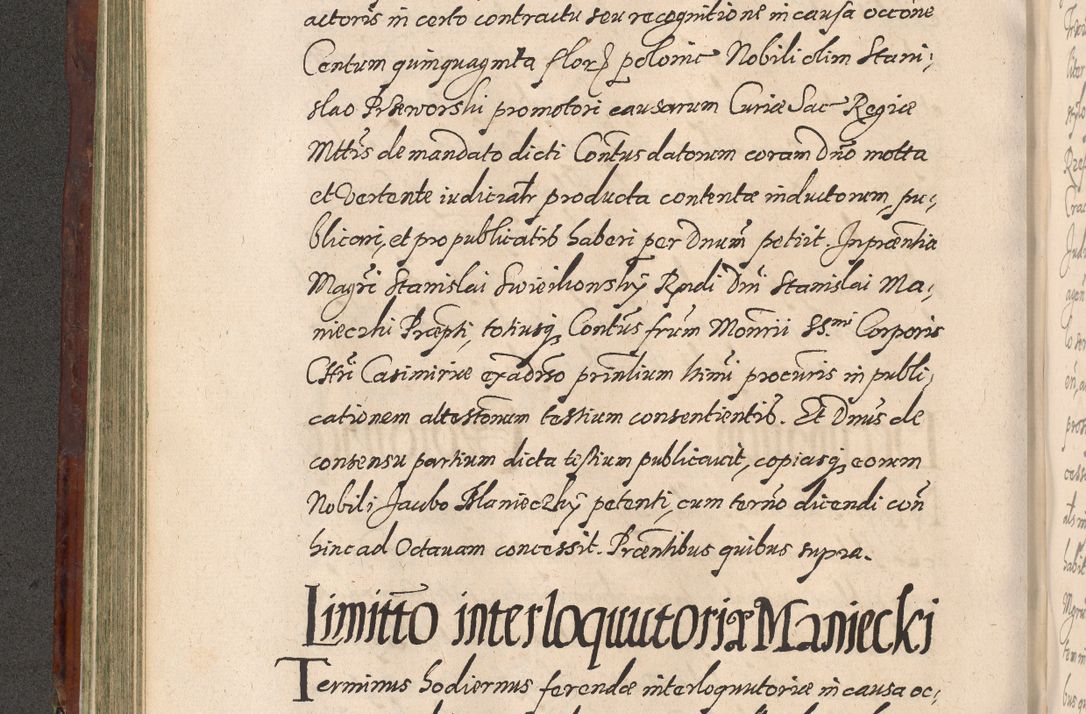 actoris in certo contractu seu recognitione in causa occōne
Centum quinquaginta flor polonic Nobili olim Stani,
slao Przeworski promotori causarum Curiæ Sac Regiæ
Mttis de mandato dicti Contus datorum coram Dno motta
et Vertente iudicialr producta contenta inductorum, pu,
blicari, et pro publicatis haberi per Dnum petiit. In præntia
Magri Stanislai Swierkowsky Rndi Dni Stanislai Ma,
nieczki Præpti, totiusq Contus frum Monrii SS.mi Corporis
Chri Casimiriæ ex adrso prinlium himi procuris in publi,
cationem altestorum testium consentientis. Et Dnus de
consensu partium dicta testium publicavit, copiasq eorum
Nobili Jacubo Manieczky petenti, cum termo dicendi con
hinc ad Octavam concessit. Præntibus quibus supra.
Limitto interloquutoriæ Maniecki
Terminus hodiernus ferendæ interloquutoriæ in causa oc,